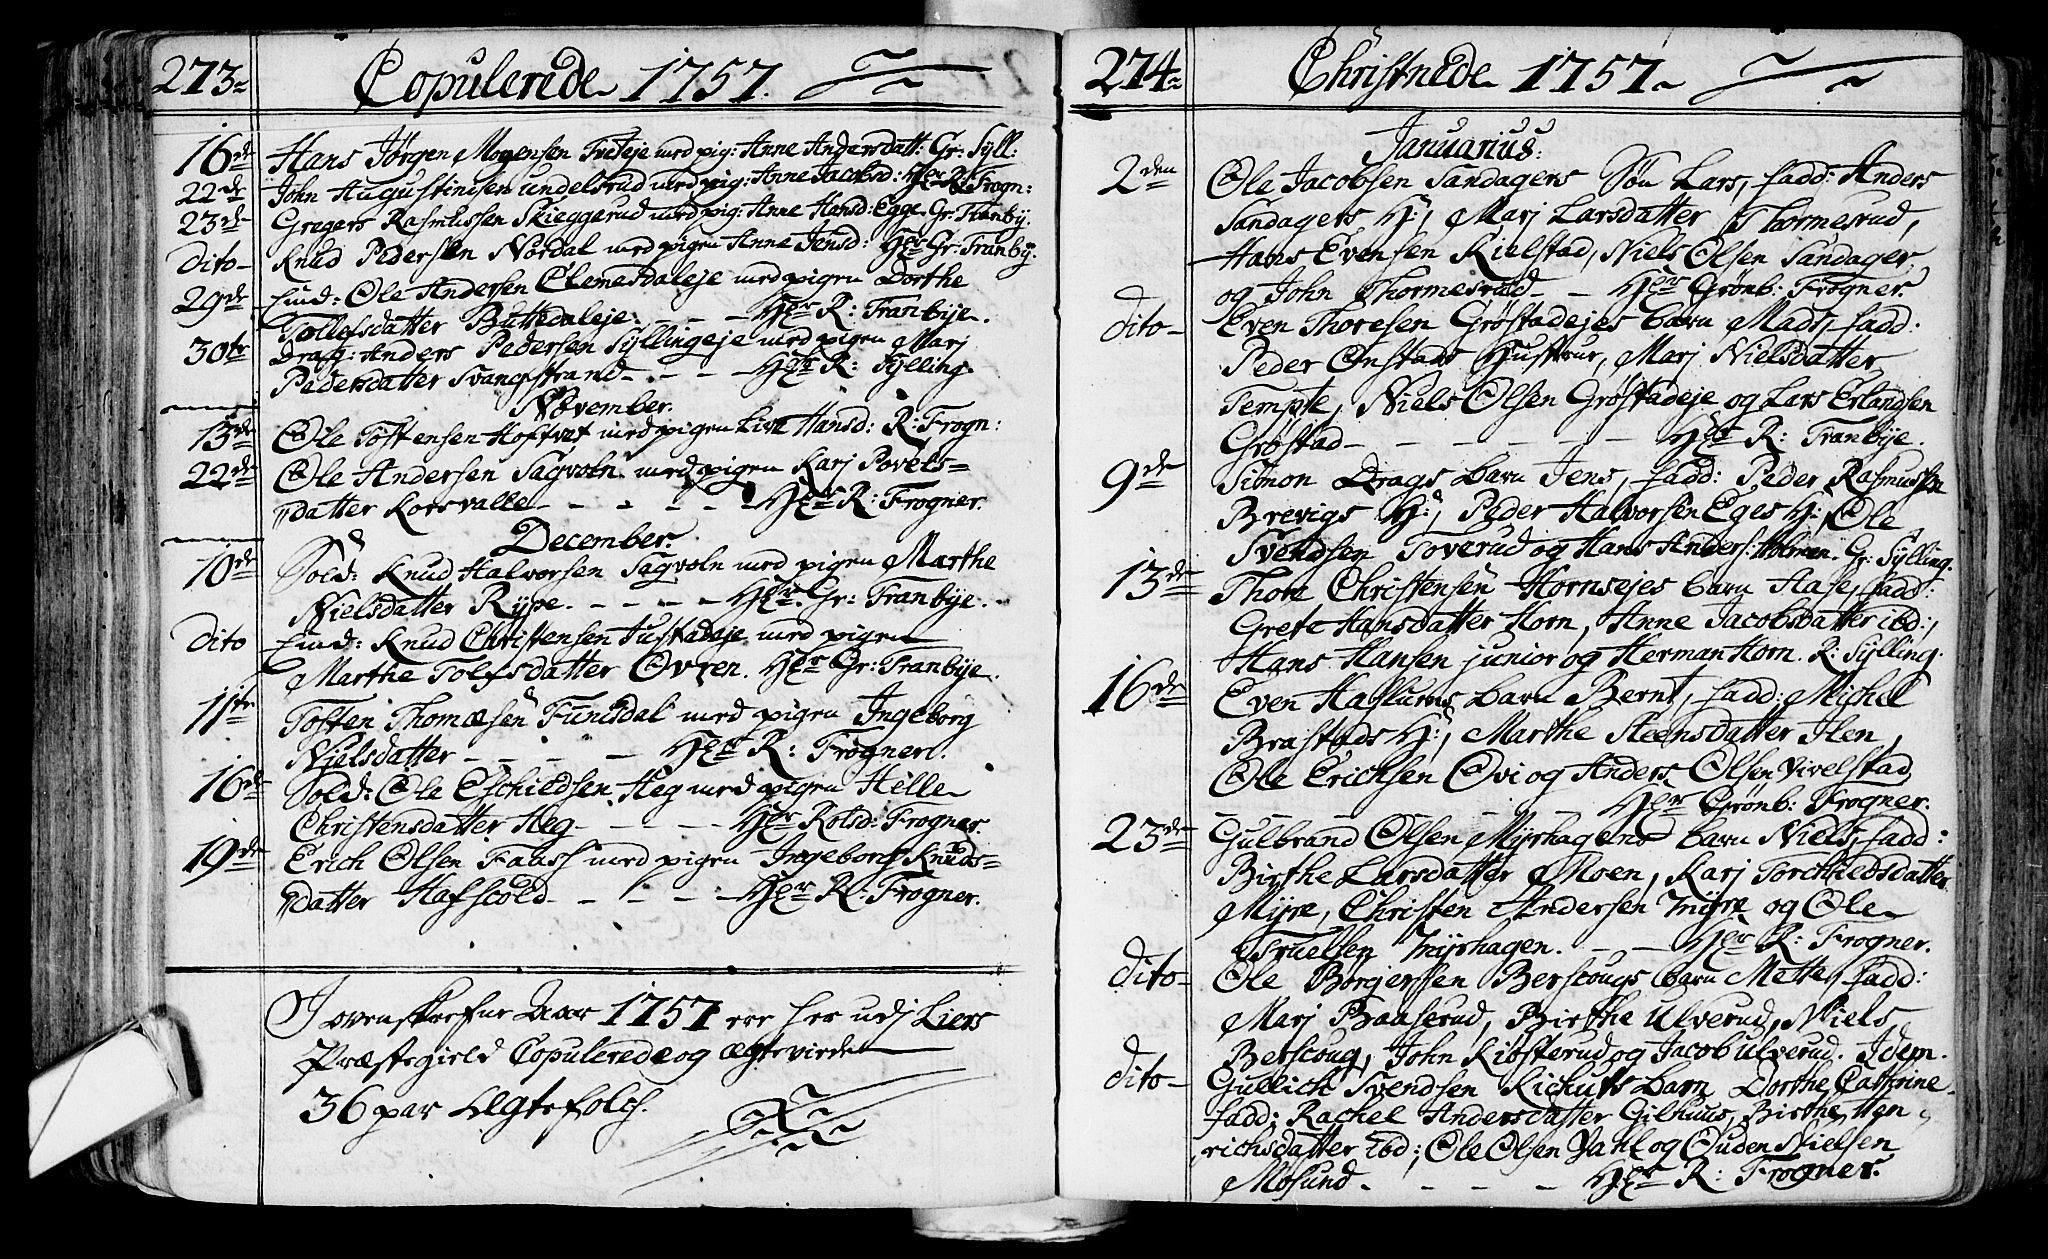 273
Copulerede 1757.
16de Hans Jørgen Mogensen Tveteje med pig: Anne Andersdatt: Gr: Syll:
22de John Augustinisen undelsrud med pig: Anne Jacobsd: Hr R: Frogn:
23de Gregers Rasmussen Skieggerud med pig: Anne Hansd: Egge. Gr: Tranby.
Dito Knud Pedersen Nordal med pigen Anne Jensd: Hr Gr: Tranby.
29de Lind: Ole Andersen Clemesdaleje med pigen Dorthe
Tollefsdatter Buttedaleje. - - - Hr R: Tranbÿe.
30te Drag: Anders Pedersen Syllingeje med pigen Marj
Pedersdatter Svangstrand - - - Hr R: Sylling
November.
13de Ole Tostensen Hoftvet med pigen Live Hansd: R: Frogn:
22de Ole Andersen Sagvoln med pigen Karj Povels=
datter Korsvalle - - - - - Hr R: Frogner.
December.
10de Sold: Knud Halvorsen Sagvoln med pigen Marthe
Nielsdatter Rype. - - - - Hr Gr: Tranbÿe.
Dito Lind: Knud Christensen Justadeje med pigen
Marthe Tolfsdatter Øvren. Hr Gr: Tranbÿe.
11te Tosten Thomæsen Funisdal med pigen Ingeborg
Nielsdatter - - - - - Hr R: Frogner.
16de Sold: Ole Eschildsen Heg med pigen Helle
Christensdatter Heg - - - - Hr Rolsd: Frogner.
19de Erich Olsen Faash med pigen Ingeborg Knuds=
datter Hafscold - - - - Hr R: Frogner.
I ovenskrefne Aar 1757 ere her udj Liers
Præstegield Copulerede og ægteviede
36 par Ægtefolch.
274
Christnede 1757
Januarius:
2den Ole Jacobsen Sandagers Søn Lars, fadd: Anders
Sandagers H:, Marj Larsdatter Thormesrud,
Hans Evensen Kielstad, Niels Olsen Sandager
og John Thormesrud - - Hr Grønb: Frogner.
Dito Even Thoresen Grøstadejes barn Mads, fadd:
Peder Onstads Hustrue, Marj Nielsdatter
Tempte, Niels Olsen Grøstadeje og Lars Erlandsen
Grøstad - - - - - - - Hr R: Tranbÿe.
9de Simon Drags barn Jens, fadd: Peder Rasmussen
Brevigs H:, Peder Halvorsen Eges H:, Ole
Svendsen Toverud og Hans Anders: Holmen. Gr: Sylling.
13de Thore Christensen Hornsejes barn Aase, fadd:
Grete Hansdatter Horn, Anne Jacobsdatter ibd:,
Hans Hansen junior og Herman Horn. R: Sylling.
16de Even Haslums barn Bernt, fadd: Michel
Brastads H:, Marthe Steensdatter Ilen,
Ole Erichsen Ovi og Anders Olsen Vivelstad
- - - - - Hr Grønb: Frogner.
23de Gulbrand Olsen Mÿrhagens barn Niels, fadd:
Birthe Larsdatter Moen, Karj Torchildsdatter
Mÿre, Christen Andersen Mÿre og Ole
Truelsen Mÿrhagen. - - - Hr R: Frogner.
Dito Ole Borgerssen Berscougs barn Mette, fadd:
Marj Baaserud, Birthe Ulverud, Niels
Berscoug, John Kiosterud og Jacob Ulverud. Idem.
Dito Gullich Svendsen Kichuts barn Dorthe Cathrine
fadd: Rachel Andersdatter Gilhuus, Birthe Hen
richsdatter ibd:, Ole Olsen Dahl og Ouden Nielsen
Mosund - - - - Hr R: Frogner.